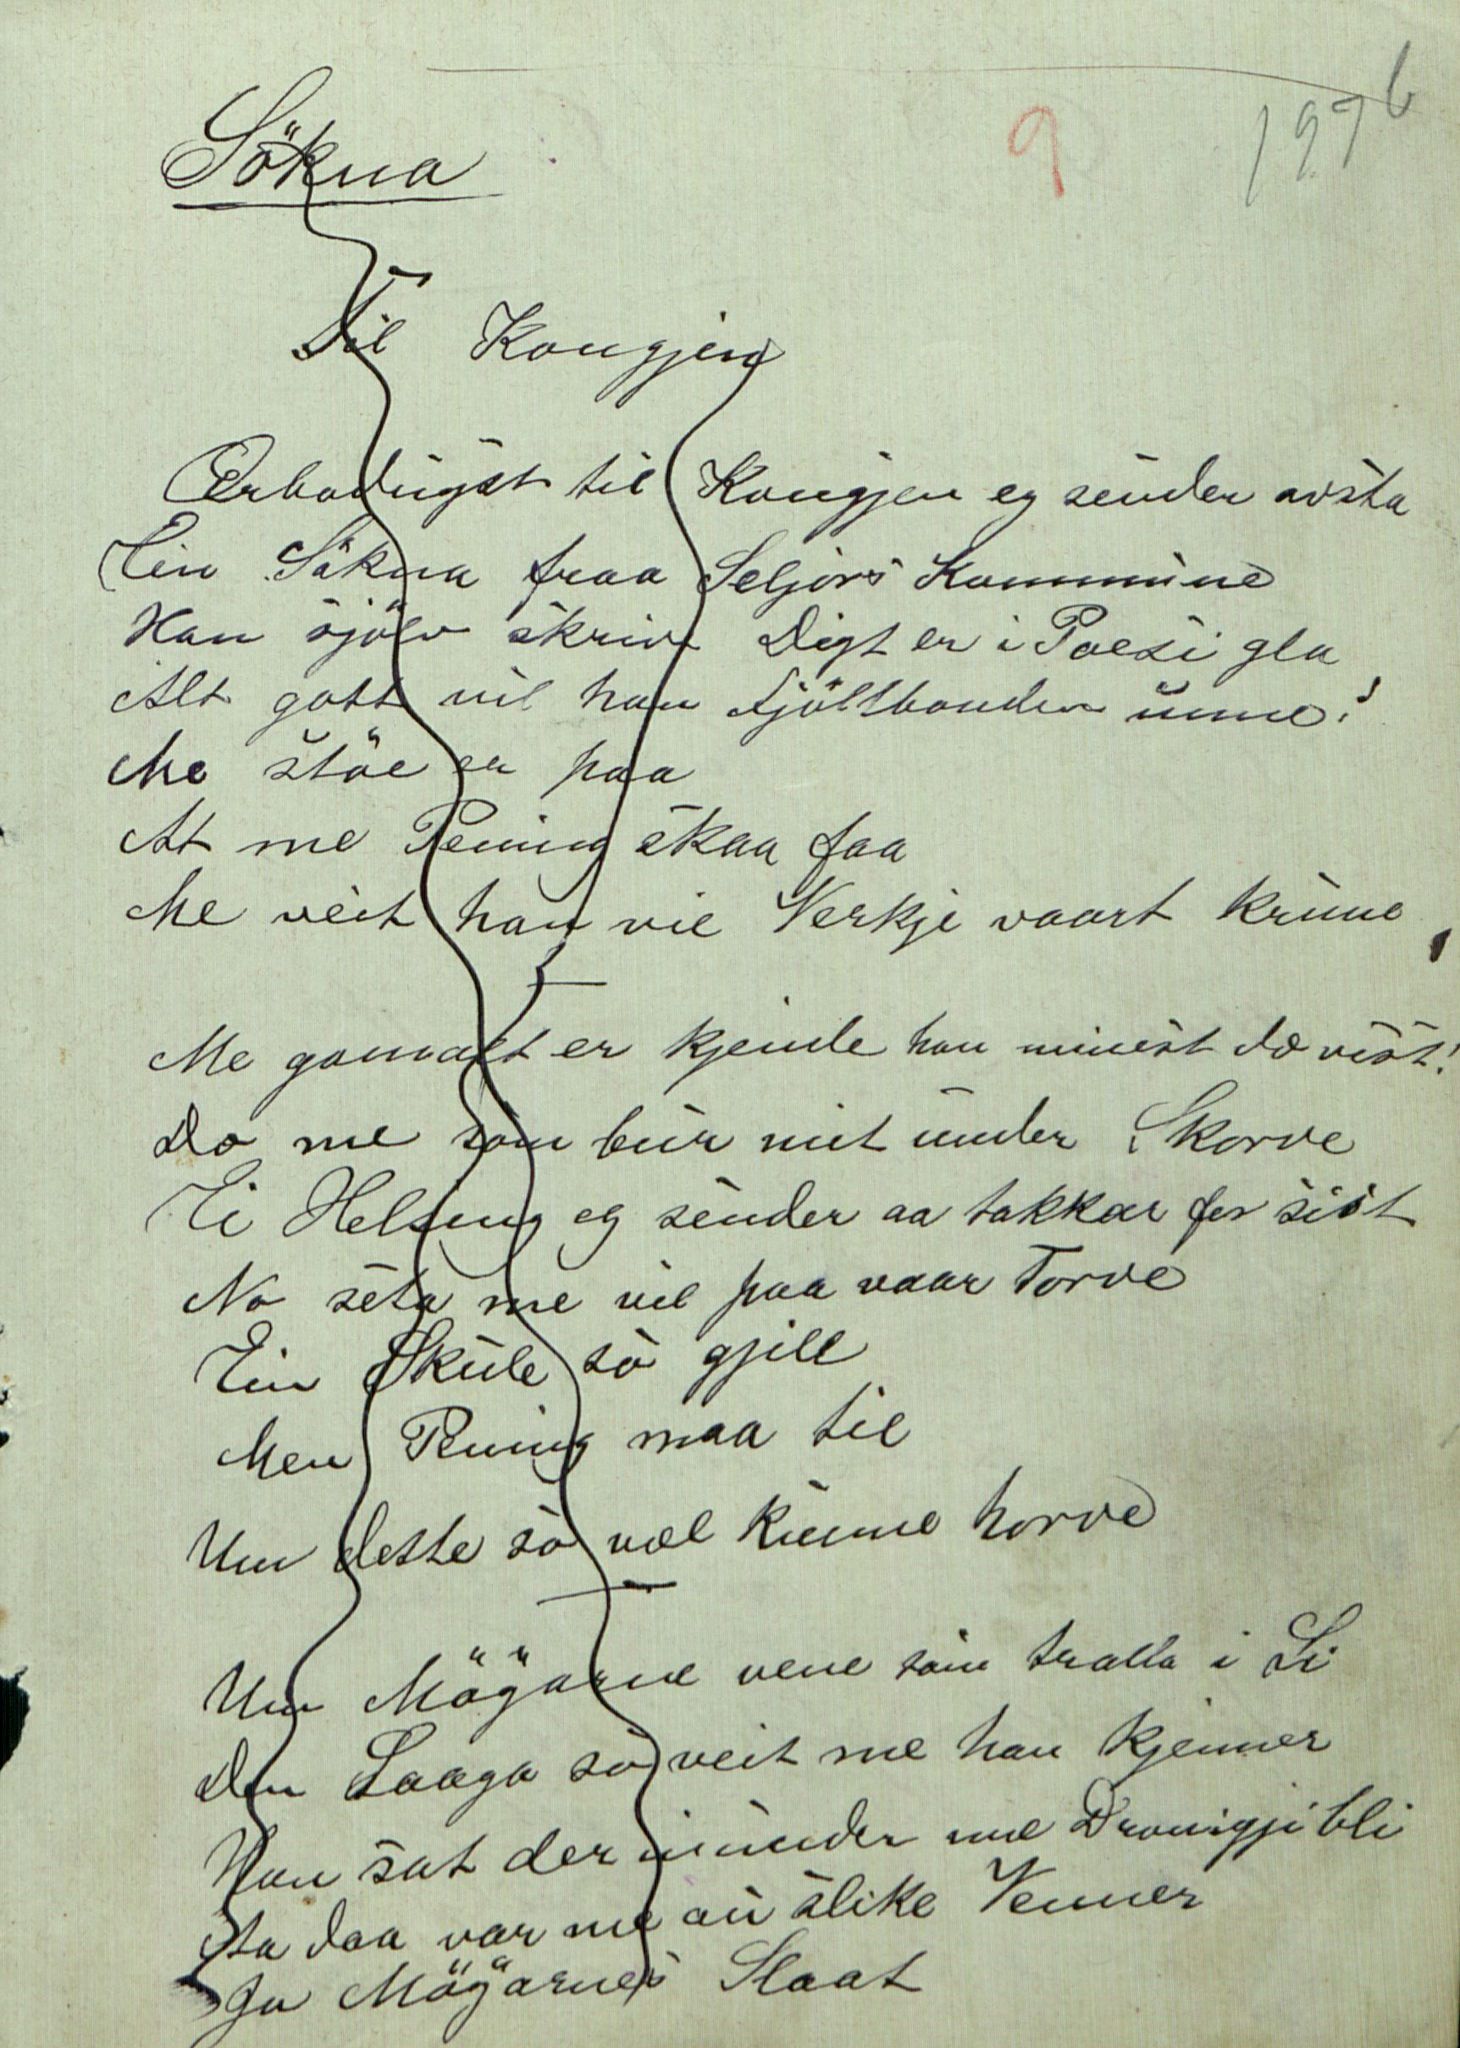 9
197b
Sökna
Til Kongjen
Ærbodugst til Kongjen eg sender avsta
Ein Sökna fraa Seljors Kommune
Han sjölv skriv Digt er i Poesi gla
Alt gott vil han Fjöllbonden unne!
Me stöe er paa
At me Pening skaa faa
Me veit han vil Verkje vaart krune
Me gamalt er kjende han minest da visst!
Da me som bur mit under Skorve
Ei Helsing eg sender aa takkar for sist
No seta me vil paa vaar Torve
Ein Skule so gjill
Men Pening maa til
Um dette so væl kunne horve
Um Möyarne vene som tralla i Li
Den Saaga so veit me han kjenner
Han sat der innunder me Dronigji bli
Ja daa var me au slike Venner
Ja Möyarnes Slaat